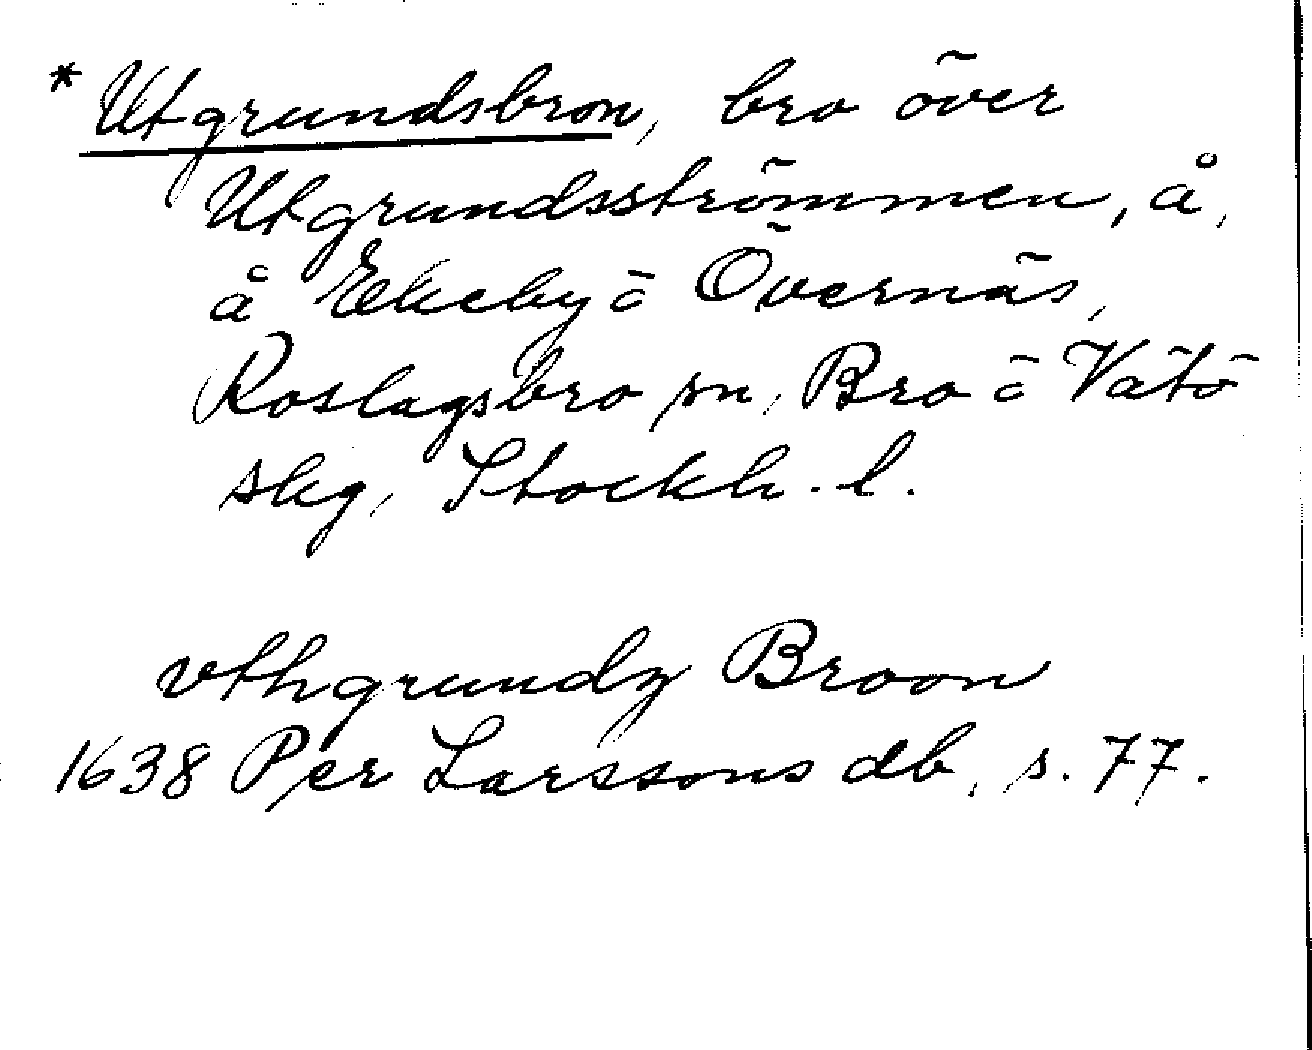 * Utgrundsbron, bro över
Utgrundsströmmen, å,
å Ekeby o Övernäs,
Roslagsbro sn, Bro o Vätö
skg, Stockh. l.
vthgrundz Broon
1638 Per Larssons db, s. 77.